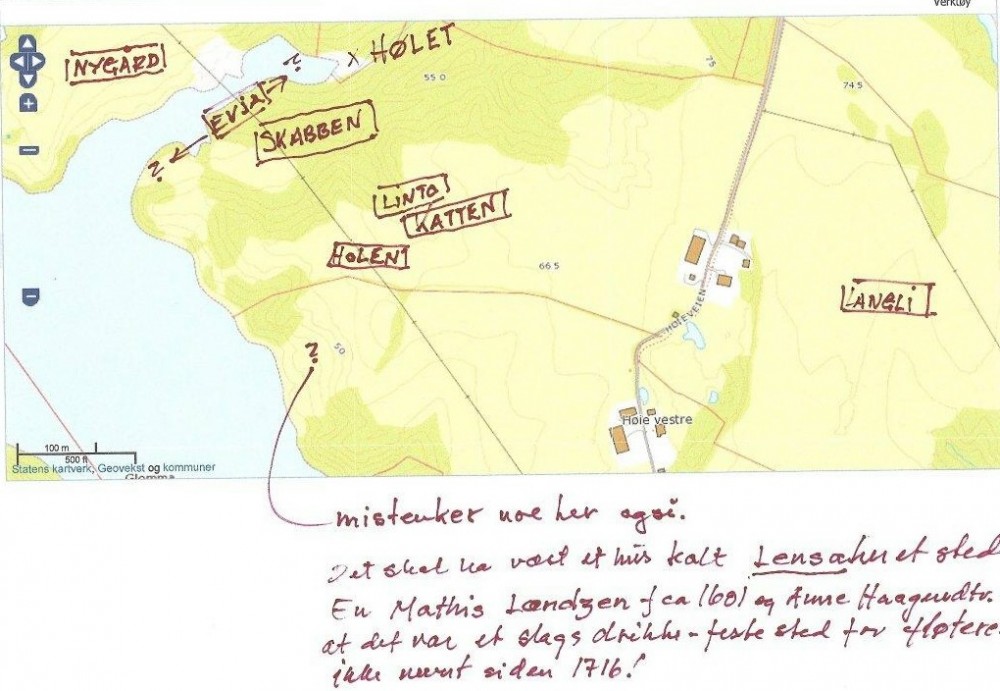 Verktøy
NYGARD
?
x HØLET
EVJA
SKABBEN
?
LINTO
KATTEN
HOLEN
LANGLI
?
55 0
75
74 5
66 5
50
HØIEVEIEN
Høie vestre
100 m
500 ft
Statens kartverk, Geovekst og kommuner
Glomma
mistenker noe her også.
Det skal ha vært et hus kalt Lensahu et sted
En Mathis Lændzen f ca 1681 og Anne Haagensdtr.
at det var et slags drikke-feste sted for fløtere
ikke nevnt siden 1716!